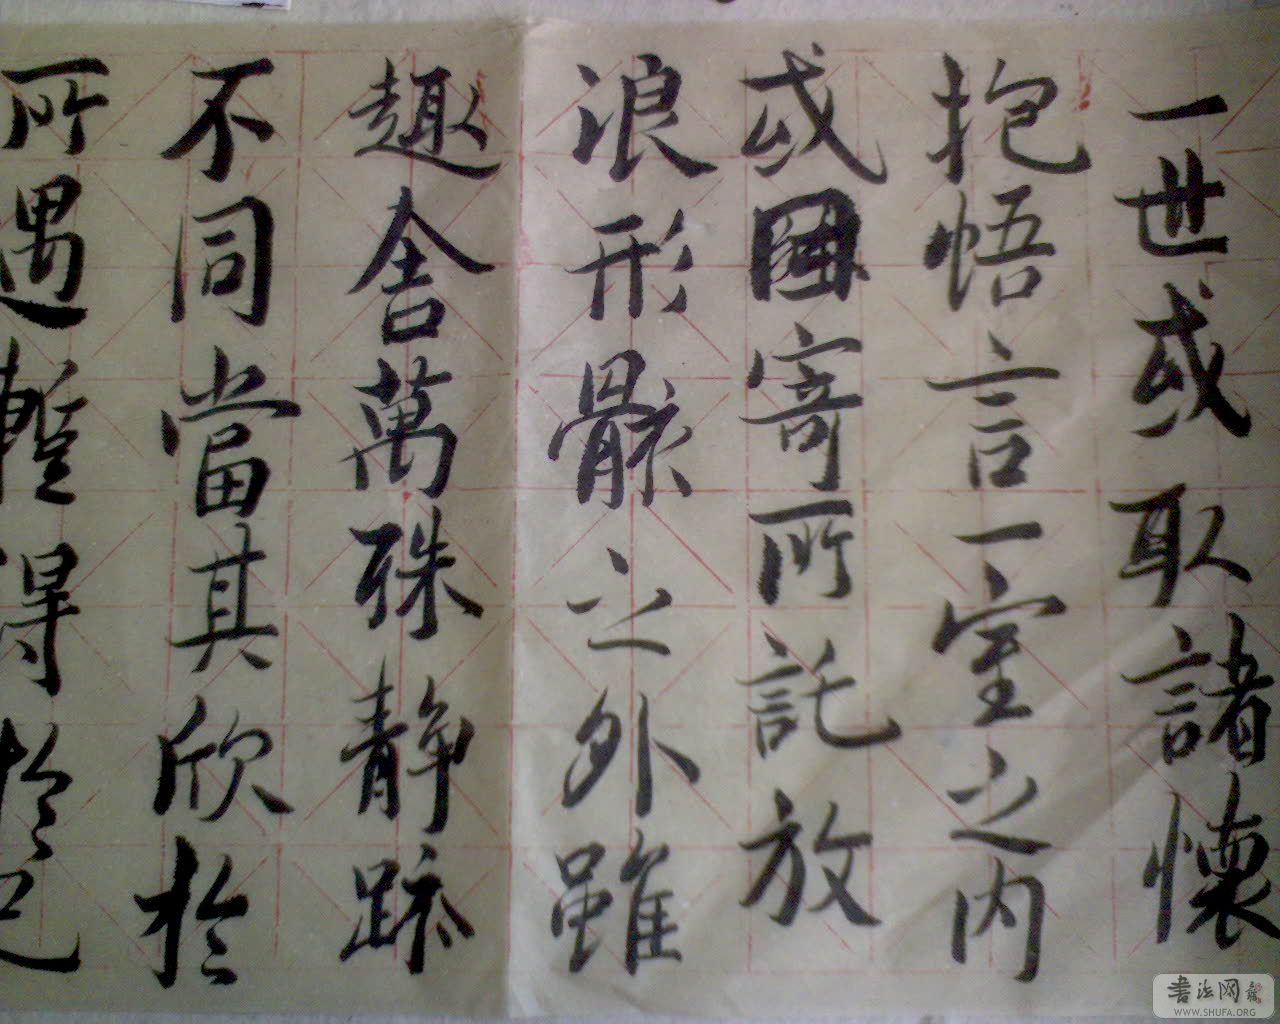 一世或取諸懷
抱悟言一室之内
或因寄所託放
浪形骸之外雖
趣舍萬殊静
不同當其欣於
所遇暫得於己
書法网
WWW.SHUFA.ORG